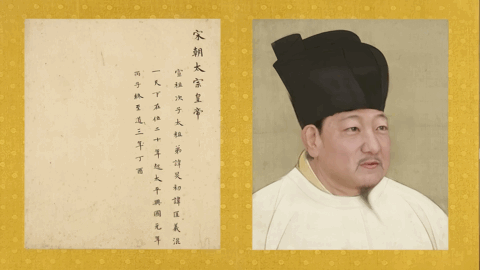 宋朝太宗皇帝
宣祖次子太祖弟諱炅初諱匡義混
一天下在位二十年起太平興國元年
丙子終至道三年丁酉